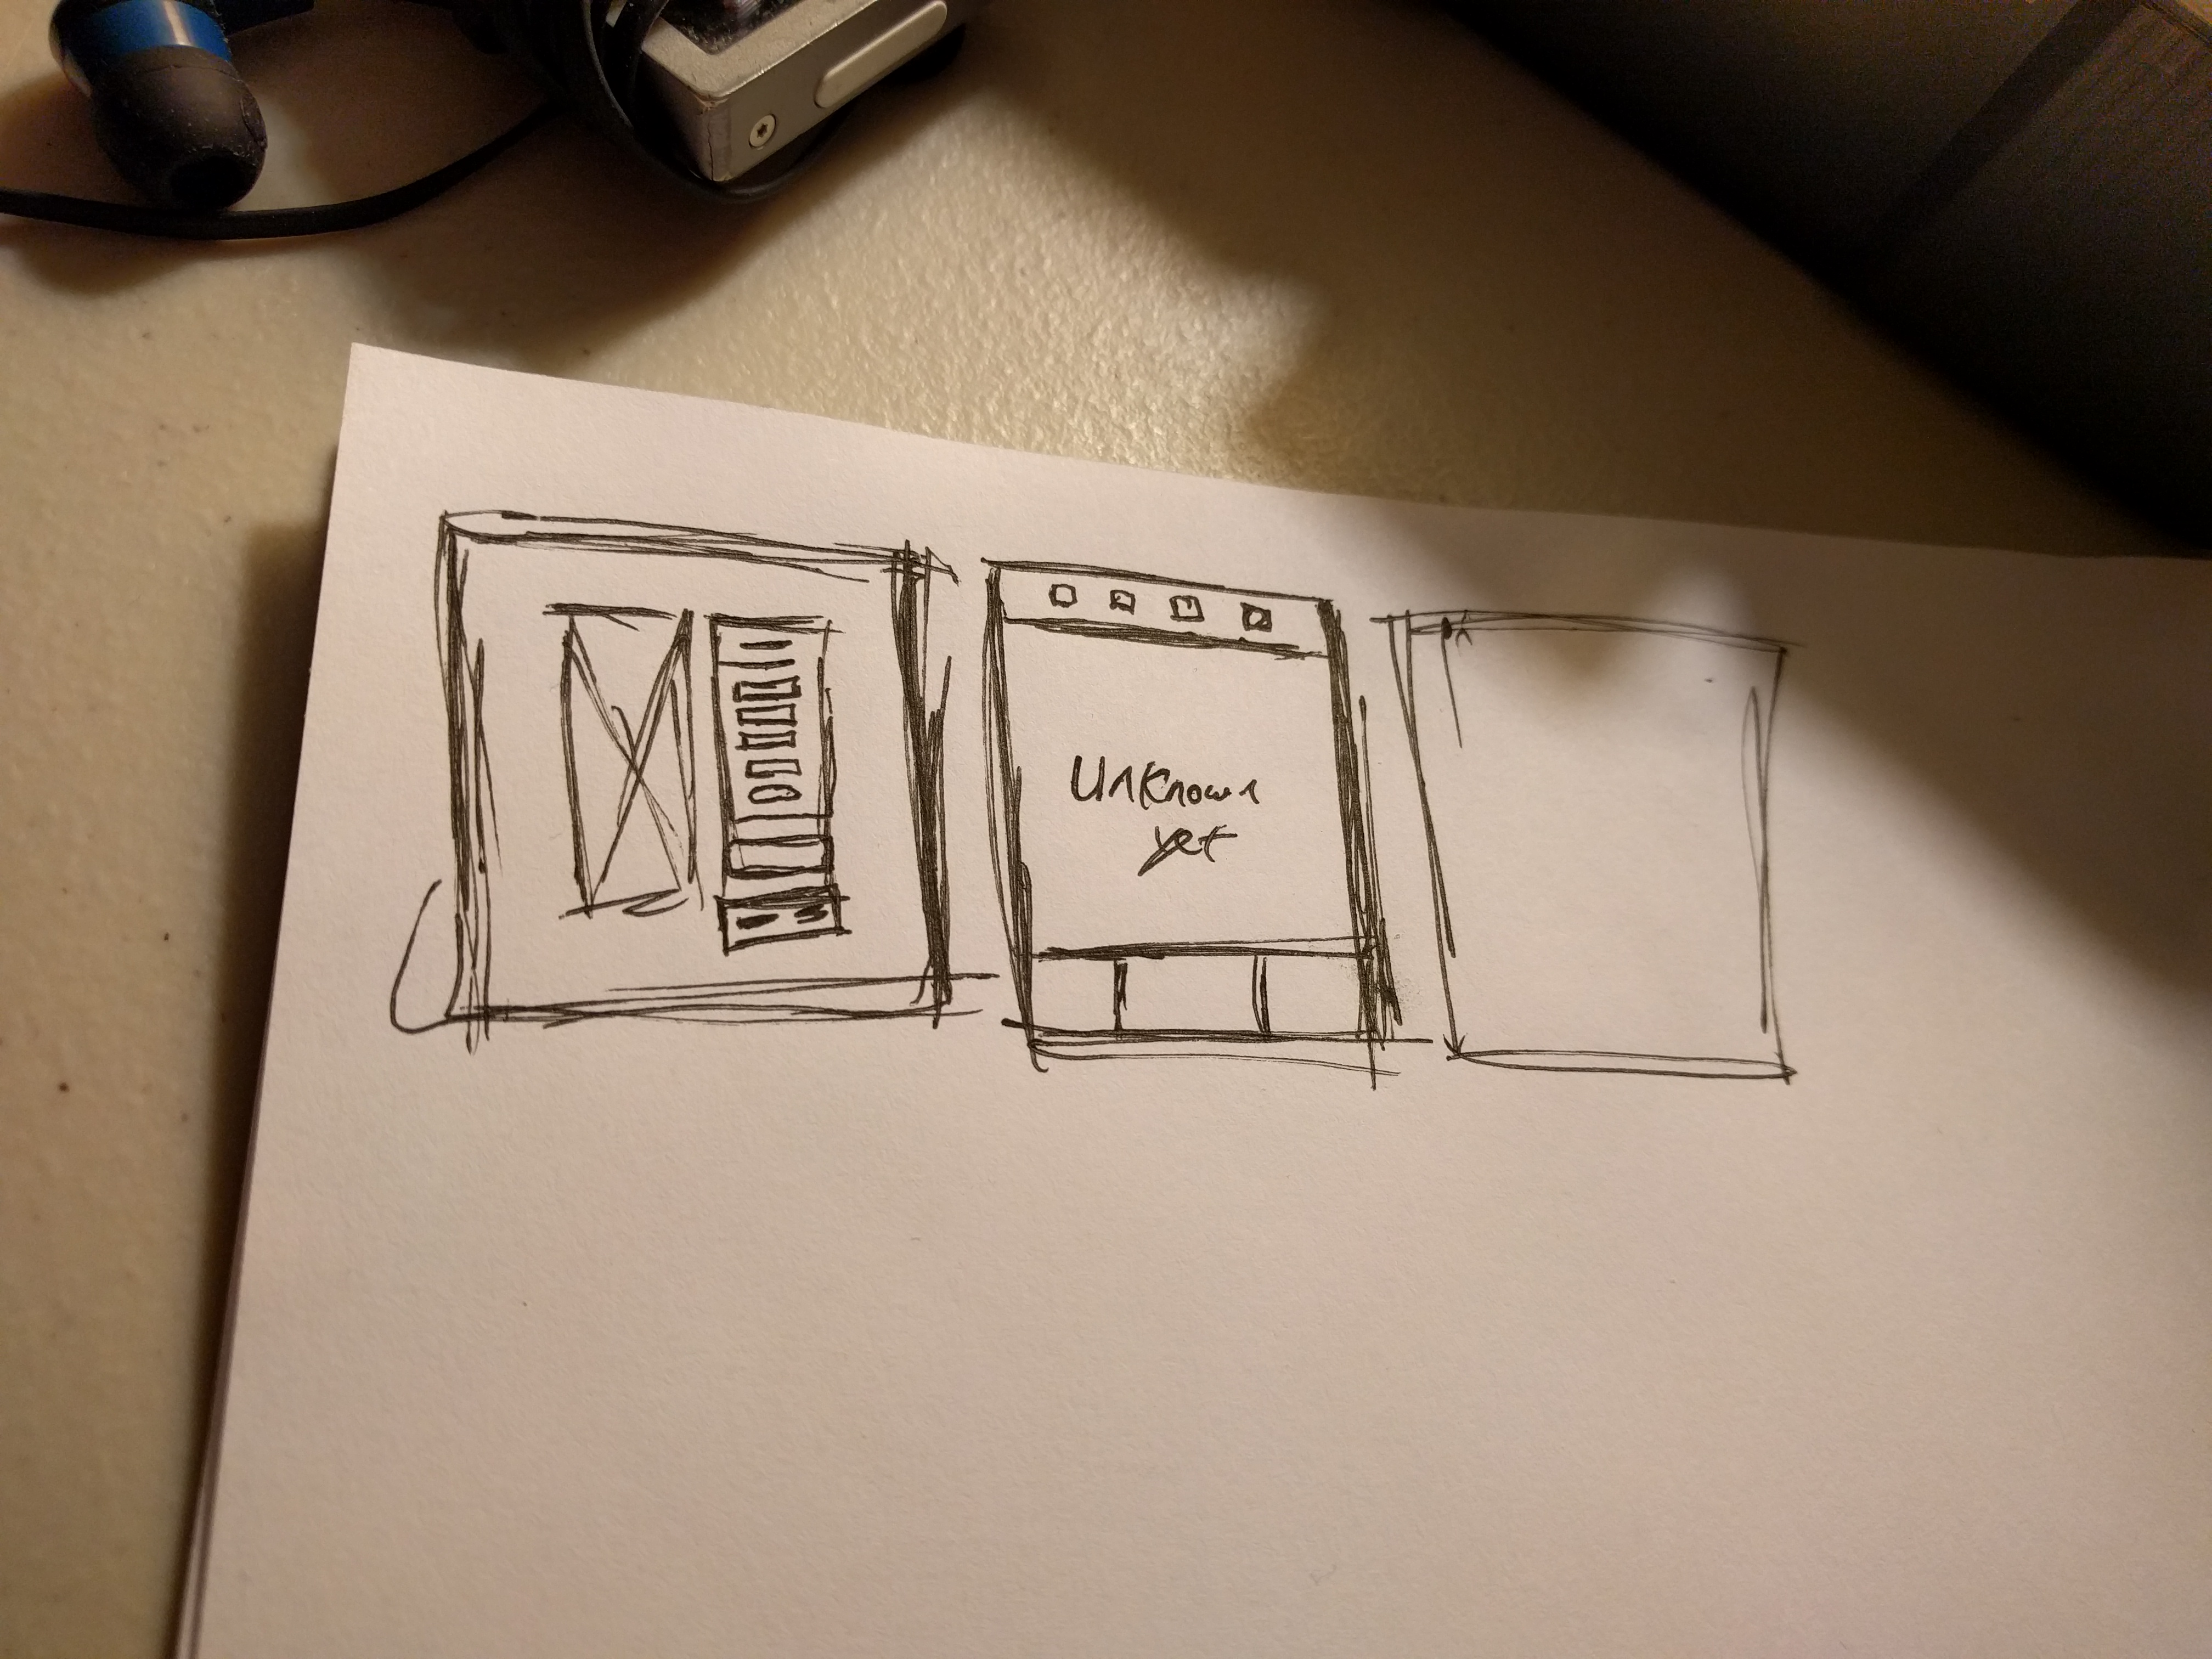 Unknown
yet